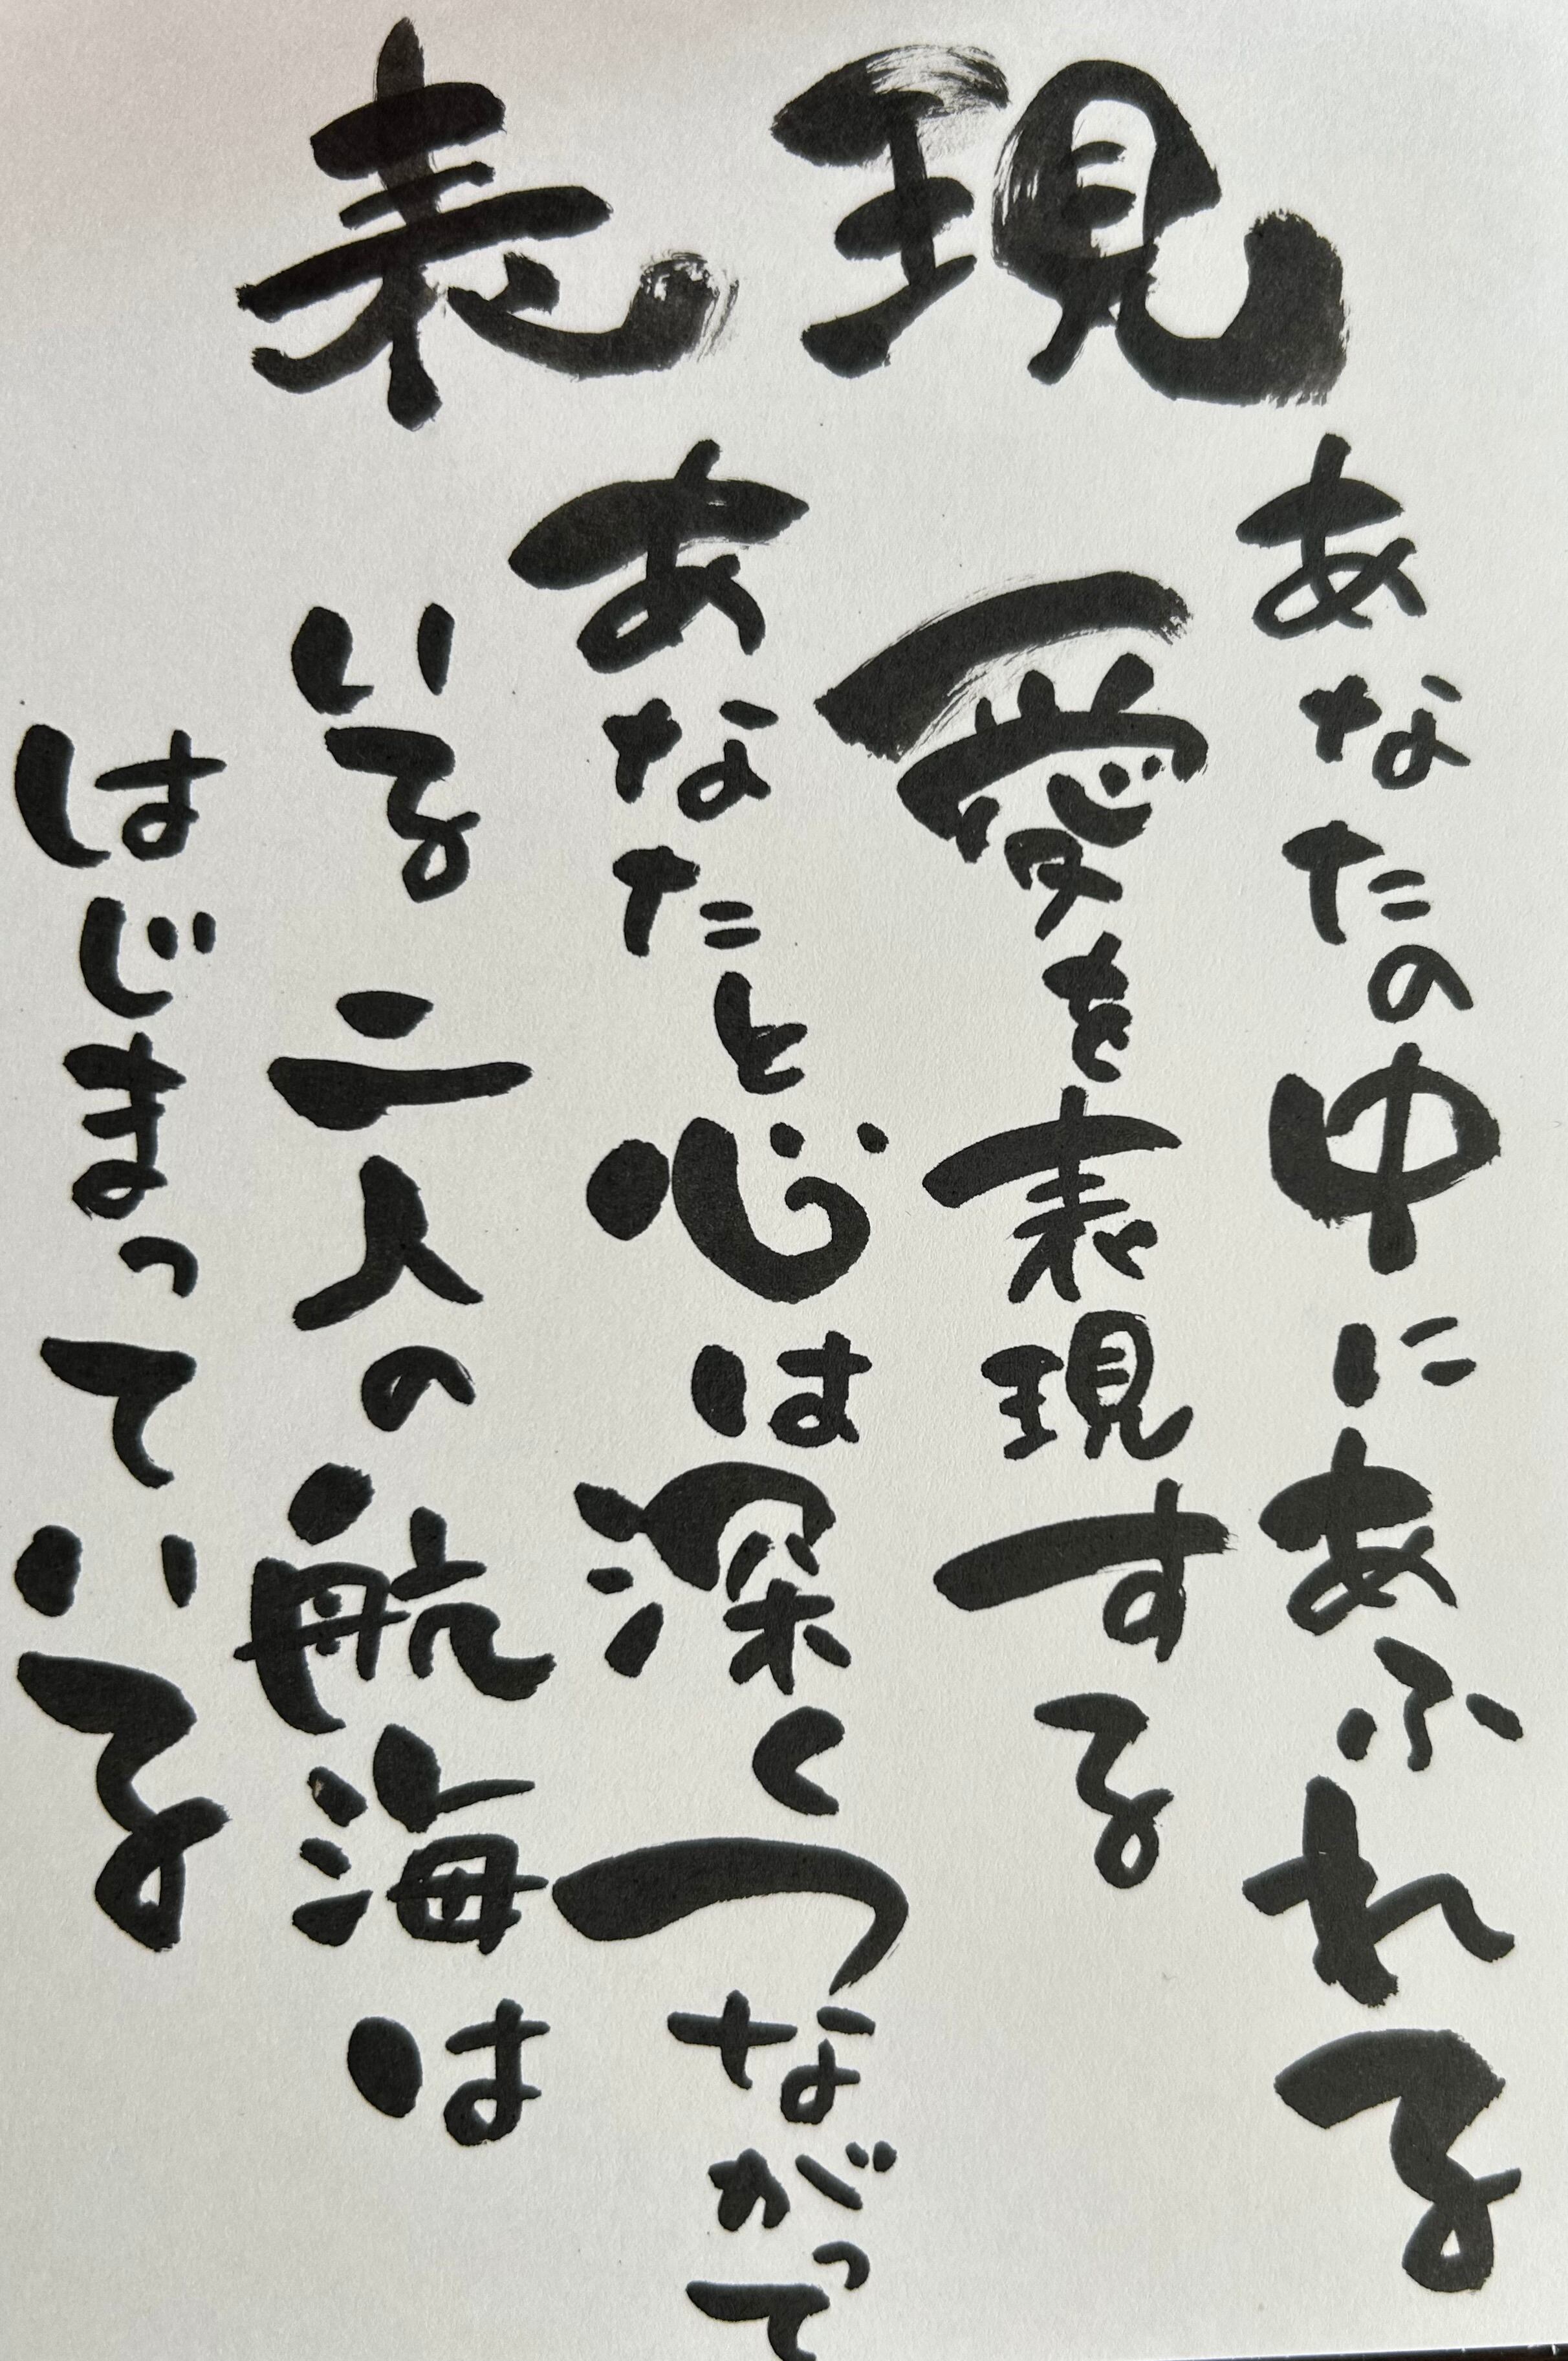 表現
あなたの中にあふれる
愛を表現する
あなたと心は深くつながって
いる 二人の航海は
はじまっている